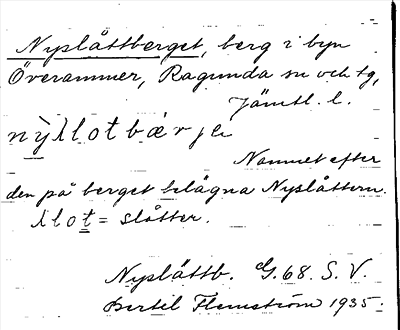 Nyslåttberget, berg i byn
Överammer, Ragunda sn och tg,
Jämtl. l.
nỳʃlotbærje
Namnet efter
den på berget belägna Nyslåttern.
ʃlot = slåtter.
Nyslåttb. G. 68. S. V.
Bertil Flemström 1935.